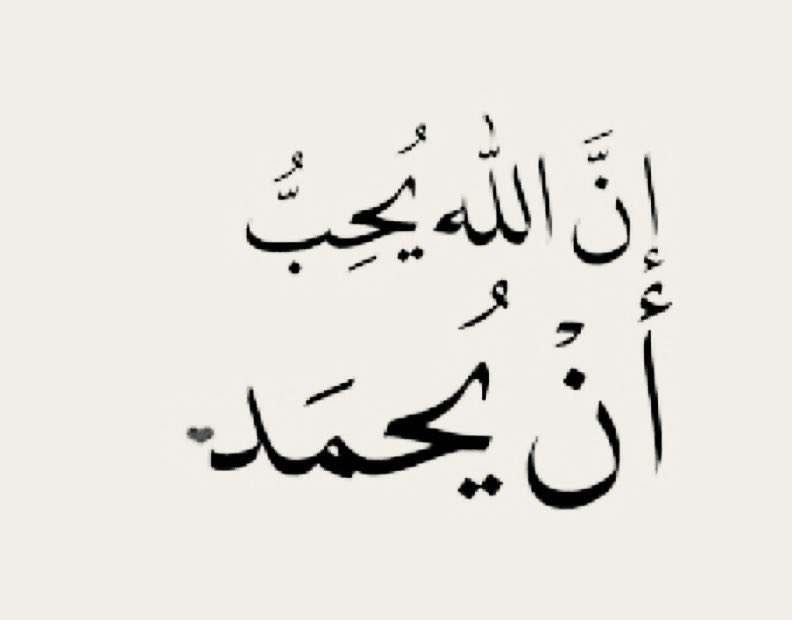 إِنَّ اللّٰه يُحِبُّ
أَنْ يُحمَد